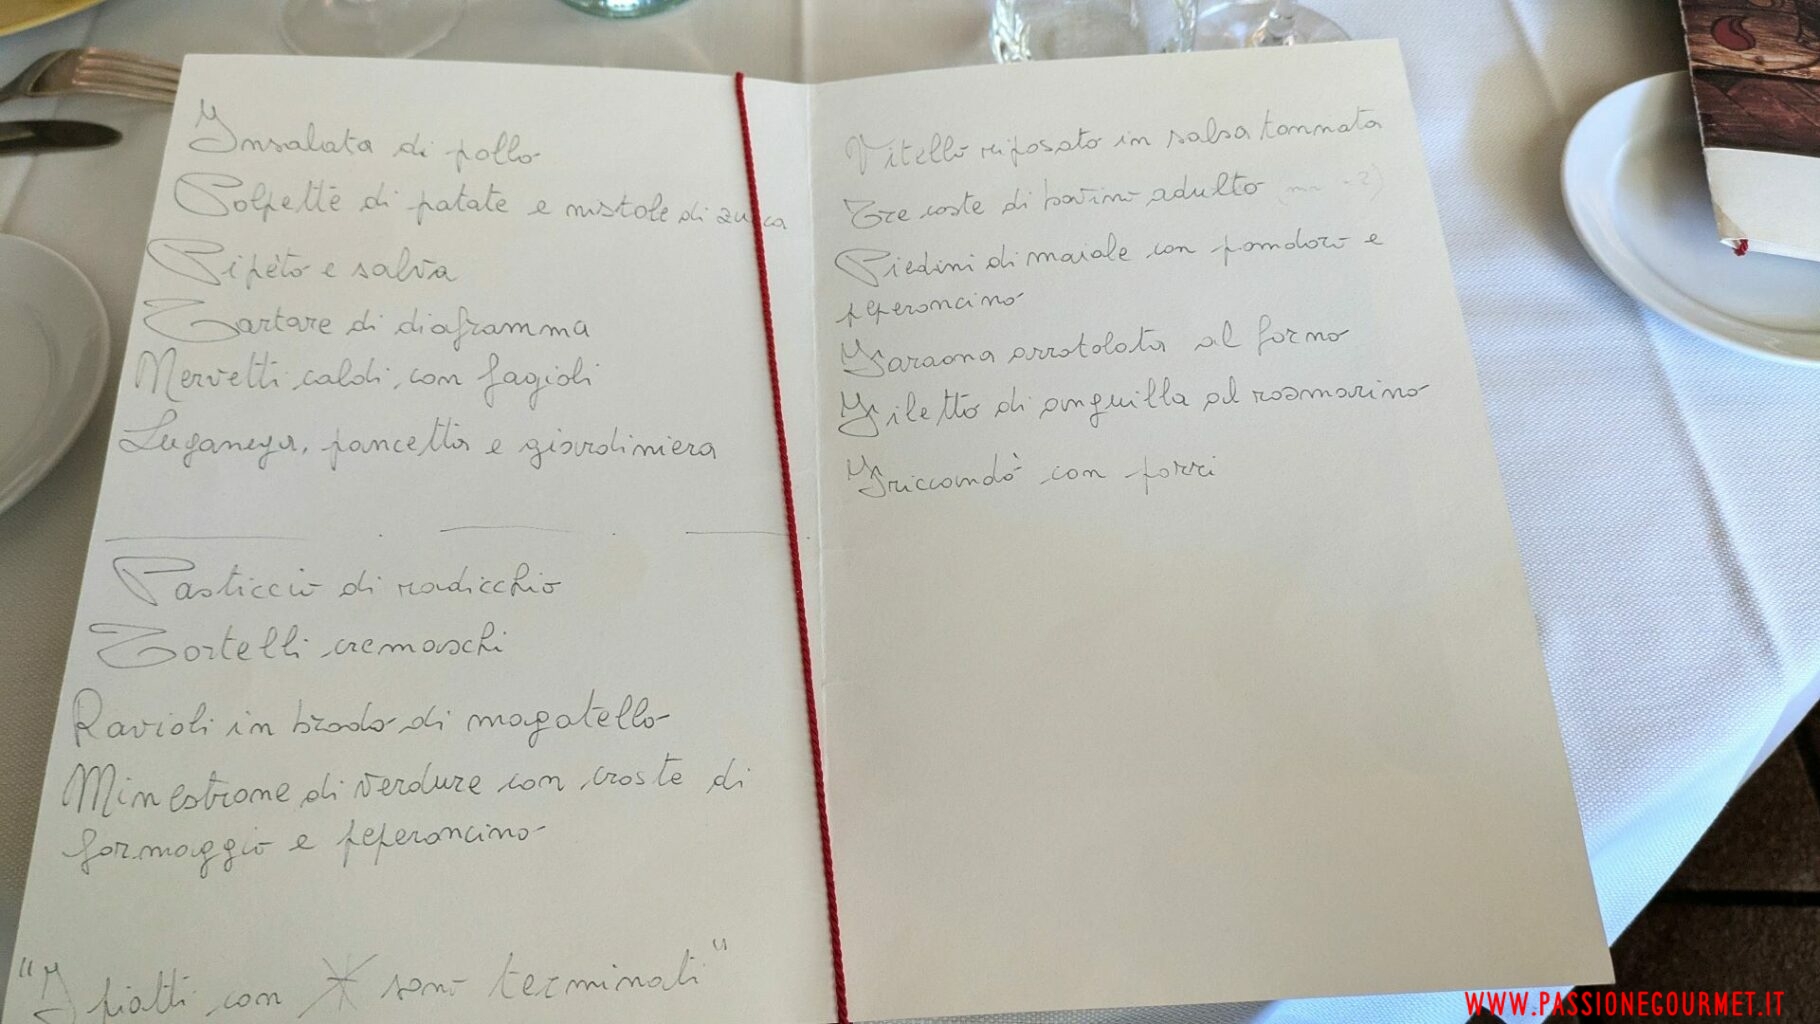 Insalata di pollo
Polpette di patate e nistole di zucca
Pipèto e salva
Tartare di diaframma
Nervetti caldi con fagioli
Luganega, pancetta e giardiniera
Pasticcio di radicchio
Tortelli cremaschi
Ravioli in brodo di magatello
Minestrone di verdure con croste di
formaggio e peperoncino
"I piatti con * sono terminati"
Vitello riposato in salsa tonnata
Tre coste di bovino adulto
Piedini di maiale con pomodoro e
peperoncino
Faraona arrotolata al forno
Filetto di anguilla al rosmarino
Friccandò con porri
WWW.PASSIONEGOURMET.IT